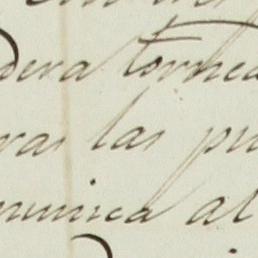 dera tornea
ras las pu
munica al